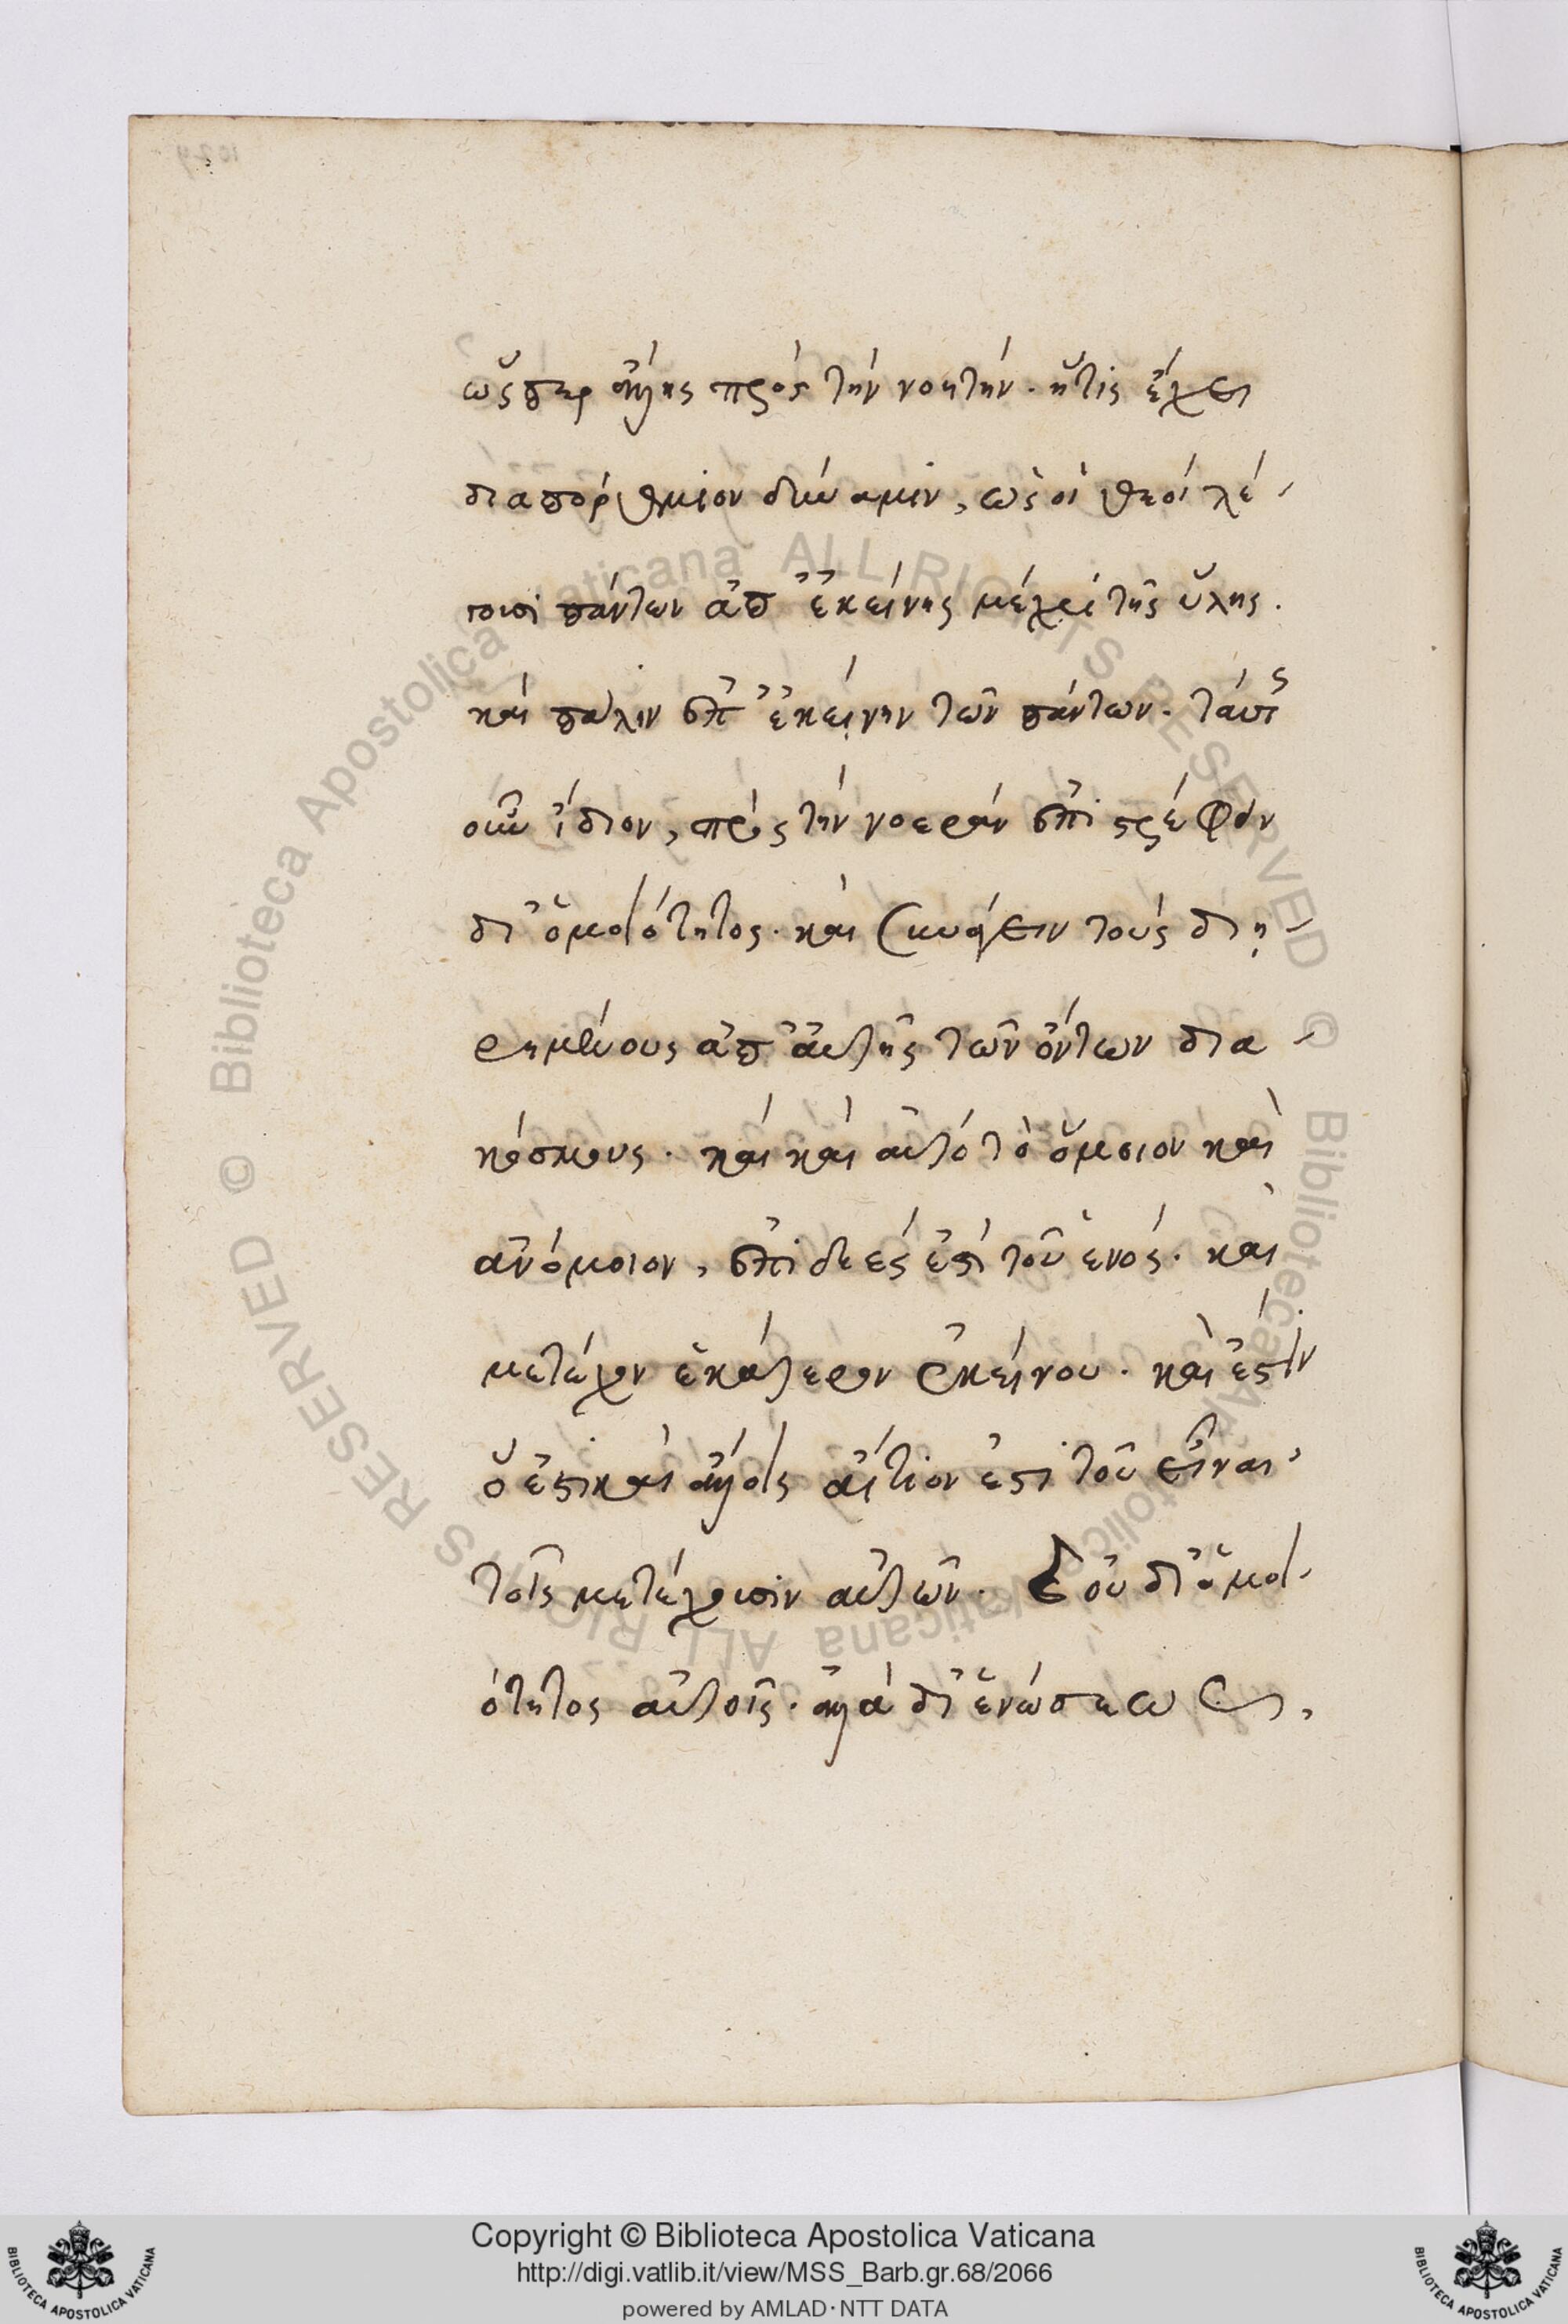 ὥσπερ ἄλλης πρὸς τὴν νοητήν. ἥτις ἔχει
διαπόρθμιον δύναμιν, ὡς οἱ θεοὶ λέ-
γουσι πάντων ἀπ' ἐκείνης μέχρι τῆς ὕλης.
καὶ πάλιν ἐπ' ἐκείνην τῶν πάντων. ταύτης
οὖν ἴδιον, πρὸς τὴν νοερὰν ἐπιστρέφον
δι' ὁμοιότητος. καὶ συνάγειν τοὺς διῃ-
ρημένους ἀπ' αὐτῆς τῶν ὄντων δια-
κόσμους. καὶ καὶ αὐτὸ τὸ ὅμοιον καὶ
ἀνόμοιον, ἐπιδεές ἐστι τοῦ ἑνός. καὶ
μετέχον ἑκάτερον ἐκείνου. καὶ ἔστιν
ὅ ἐστι καὶ ἄλλοις αἴτιόν ἐστι τοῦ εἶναι
τοῖς μετέχουσιν αὐτῶν. οὐ δι' ὁμοι-
ότητος αὐτοῖς. ἀλλὰ δι' ἑνώσεως
Copyright © Biblioteca Apostolica Vaticana
http://digi.vatlib.it/view/MSS_Barb.gr.68/2066
powered by AMLAD·NTT DATA
BIBLIOTECA APOSTOLICA VATICANA
BIBLIOTECA APOSTOLICA VATICANA
© Biblioteca Apostolica Vaticana ALL RIGHTS RESERVED © Biblioteca Apostolica Vaticana ALL RIGHTS RESERVED